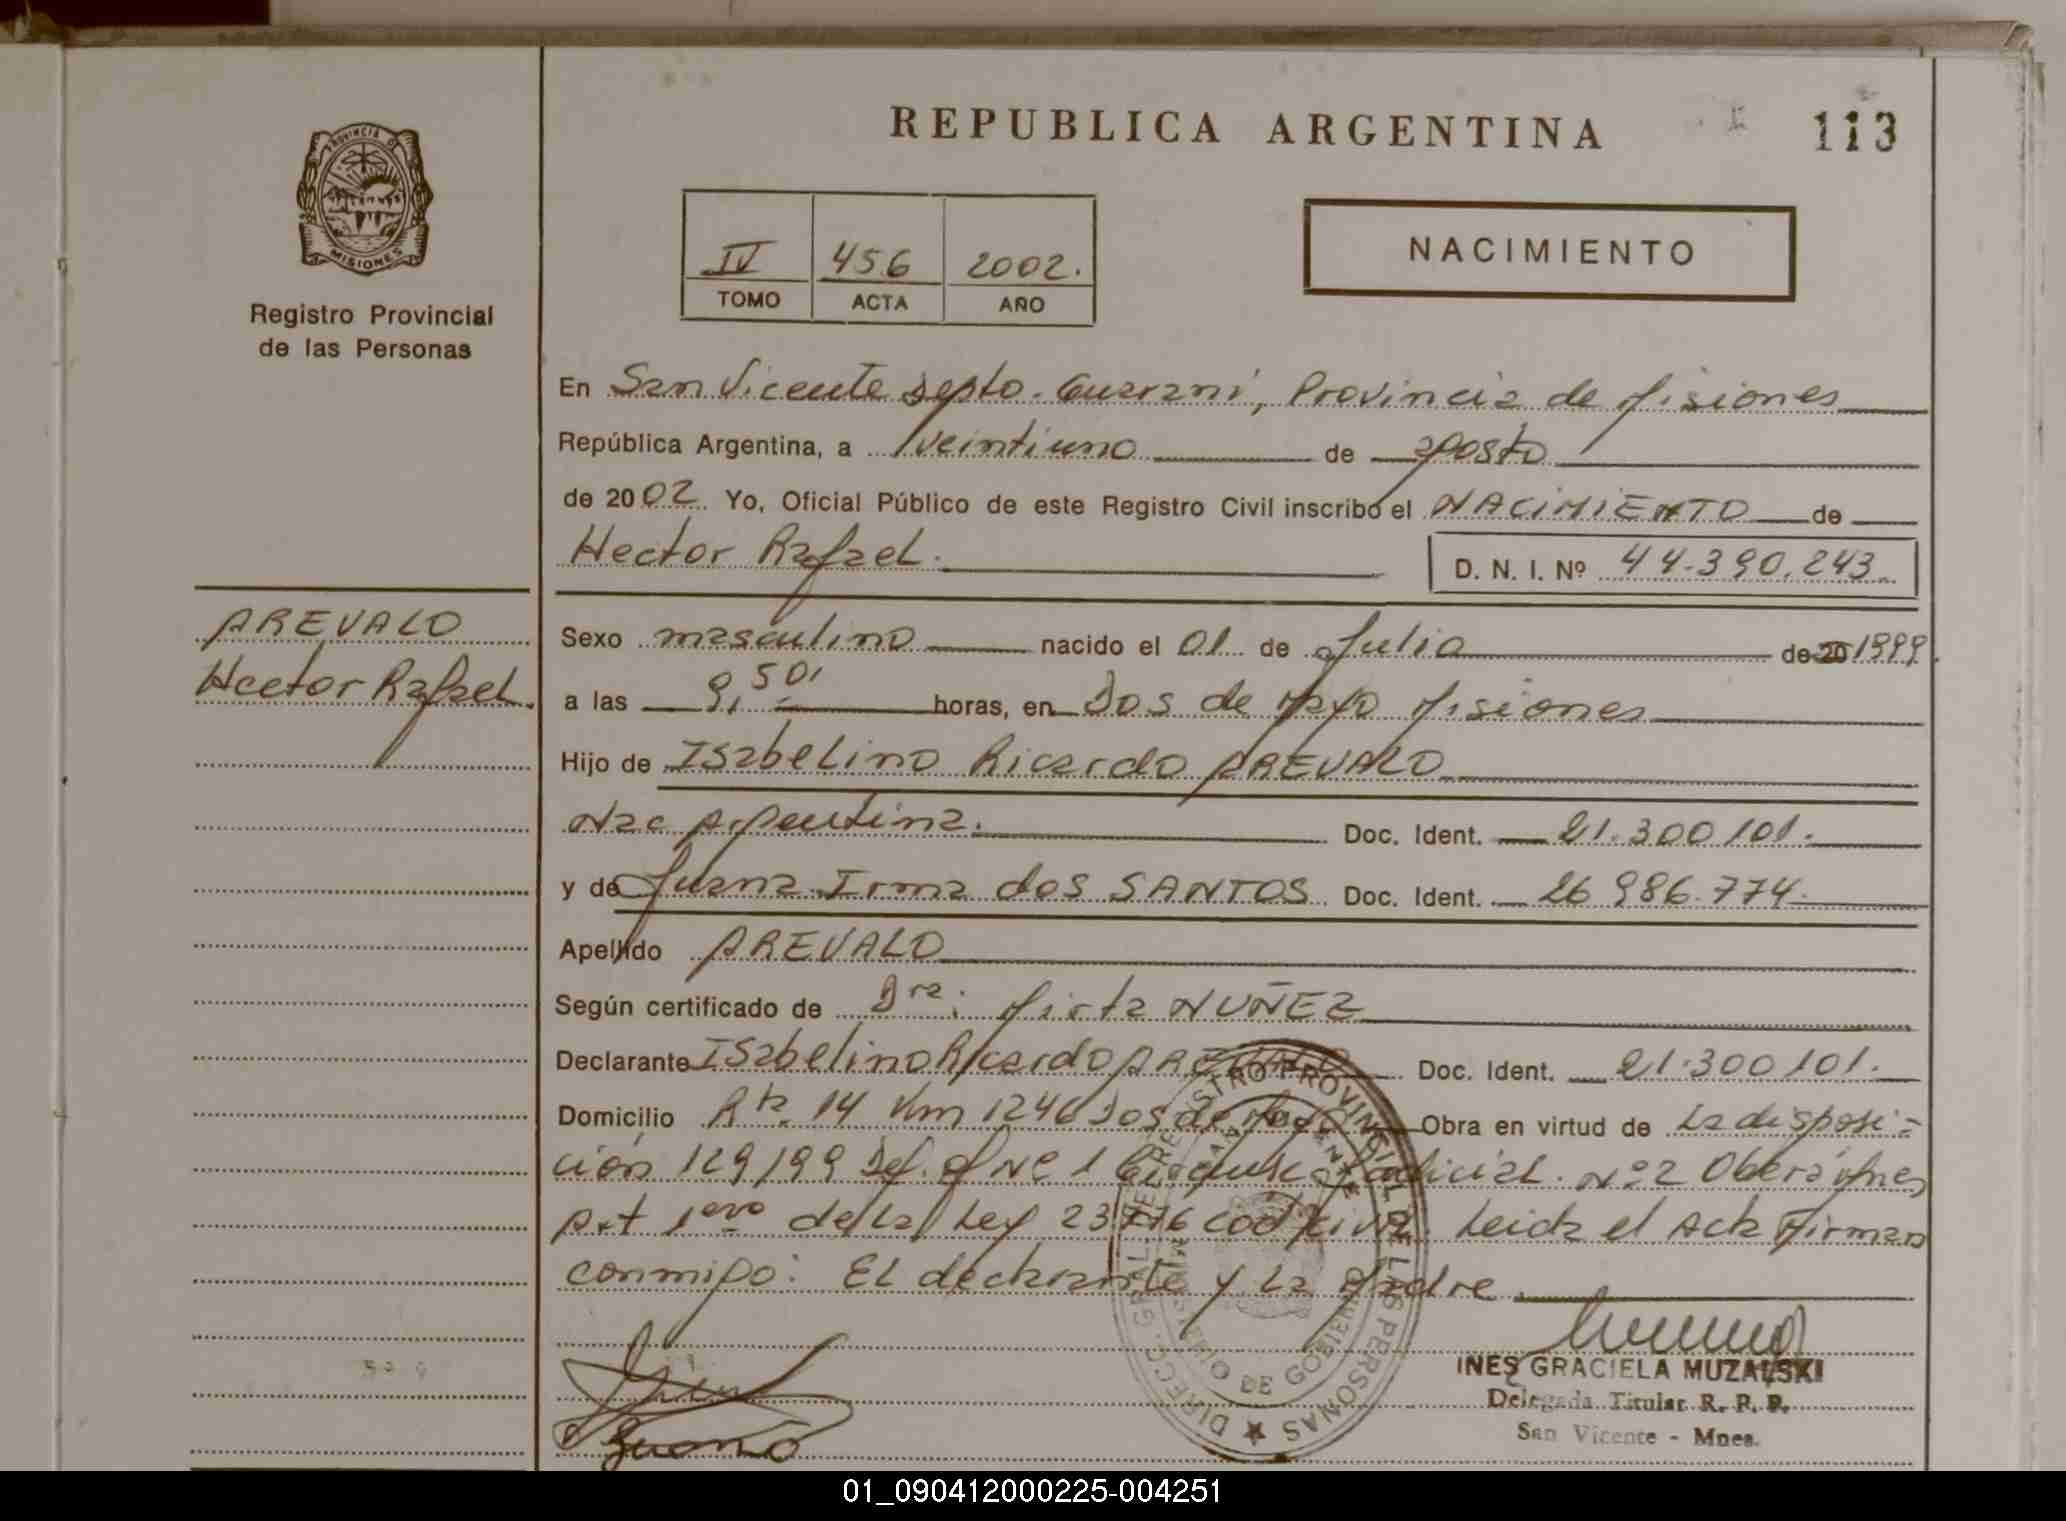 REPUBLICA ARGENTINA
113
PROVINCIA DE
MISIONES
Registro Provincial
de las Personas
IV 456 2002.
TOMO ACTA AÑO
NACIMIENTO
En San Vicente Depto. Guaraní, Provincia de Misiones
República Argentina, a veintiuno de agosto
de 2002 Yo, Oficial Público de este Registro Civil inscribo el NACIMIENTO de
Hector Rafael. D. N. I. Nº 44.390.243
AREVALO
Hector Rafael.
Sexo masculino nacido el 01 de Julio de 20 1999.
a las 9,50 horas, en Dos de Mayo Misiones
Hijo de Isabelino Ricardo AREVALO
Nac Argentina. Doc. Ident. 21.300 101.
y de Juana Irma dos SANTOS Doc. Ident. 26 986.774.
Apellido AREVALO
Según certificado de Dra. Mirta NUÑEZ
Declarante Isabelino Ricardo AREVALO Doc. Ident. 21.300 101.
Domicilio Rta. 14 Km 1246 Dos de Mayo Obra en virtud de la disposi-
ción 129/99 Def. Of Nº 1 Judicial. Nº 2 Oberá Mnes
Art 1ero de la Ley 23 776 Cod Civil. Leida el Acta Firman
conmigo: El declarante y La Madre
DIRECC. GRAL. DE REGISTRO PROVINCIAL DE LAS PERSONAS
SAN VICENTE
MINISTERIO DE GOBIERNO
INES GRACIELA MUZALSKI
Delegada Titular R. P. P.
San Vicente - Mnes.
01_090412000225-004251